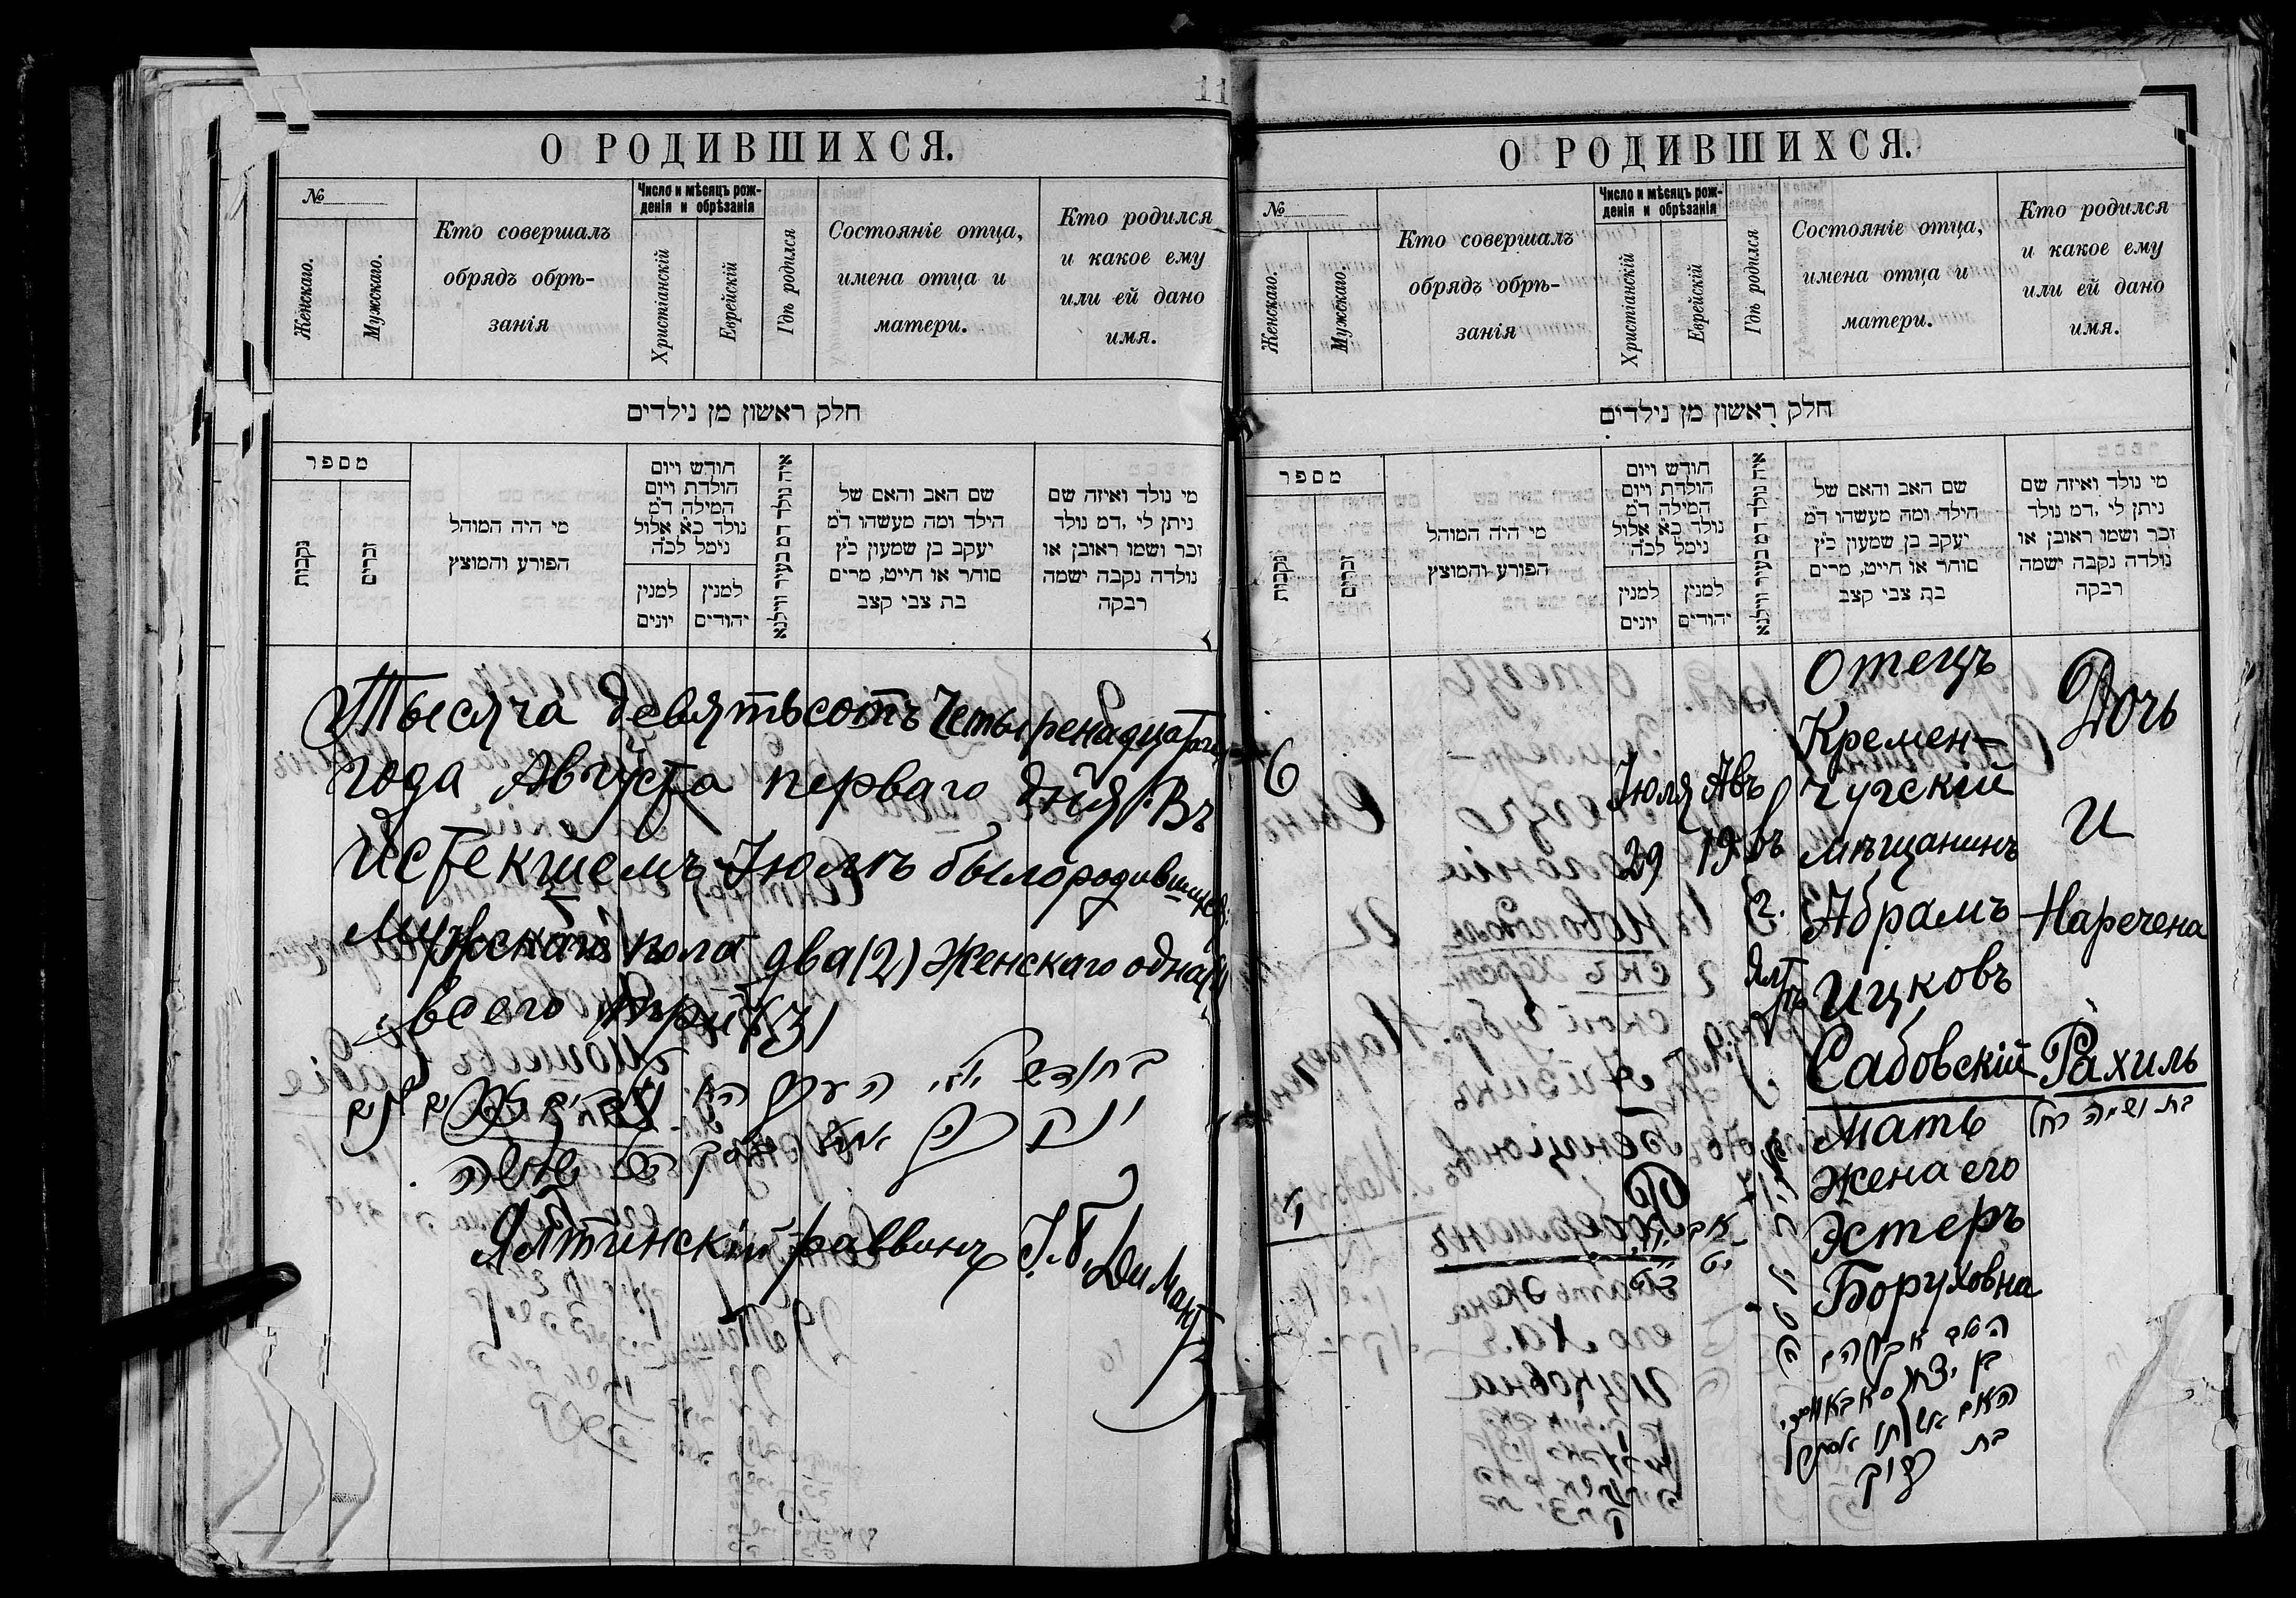 11
О РОДИВШИХСЯ.
№
Женскаго.
Мужскаго.
Кто совершалъ
обрядъ обрѣ-
занія
Число и мѣсяцъ рож-
денія и обрѣзанія
Христіанскій
Еврейскій
Гдѣ родился
Состояніе отца,
имена отца и
матери.
Кто родился
и какое ему
или ей дано
имя.
חלק ראשון מן נילדים
מספר
נקבות
זכרים
מי היה המוהל
הפורע והמוצץ
חודש ויום
הולדת ויום
המילה ד״מ
נולד כ״א אלול
נימל לכ״ה
למנין
יונים
למנין
יהודים
איה נולד דמ בעיר ווילנא
שם האב והאם של
הילד ומה מעשהו ד״מ
יעקב בן שמעון כ״ץ
סוחר או חייט, מרים
בת צבי קצב
מי נולד ואיזה שם
ניתן לי ,דמ נולד
זכר ושמו ראובן או
נולדה נקבה ישמה
רבקה
Тысяча девятьсотъ Четыренадцатаго
года Августа перваго дня. Въ
Истекшемъ Юлѣ было родившихся:
Мужскаго пола два (2) Женскаго одна (1)
всего три (3)
Ялтинскій раввинъ
О РОДИВШИХСЯ.
№
Женскаго.
Мужскаго.
Кто совершалъ
обрядъ обрѣ-
занія
Число и мѣсяцъ рож-
денія и обрѣзанія
Христіанскій
Еврейскій
Гдѣ родился
Состояніе отца,
имена отца и
матери.
Кто родился
и какое ему
или ей дано
имя.
חלק ראשון מן נילדים
מספר
נקבות
זכרים
מי היה המוהל
הפורע והמוצץ
חודש ויום
הולדת ויום
המילה ד״מ
נולד כ״א אלול
נימל לכ״ה
למנין
יונים
למנין
יהודים
איה נולד דמ בעיר ווילנא
שם האב והאם של
הילד ומה מעשהו ד״מ
יעקב בן שמעון כ״ץ
סוחר או חייט, מרים
בת צבי קצב
מי נולד ואיזה שם
ניתן לי ,דמ נולד
זכר ושמו ראובן או
נולדה נקבה ישמה
רבקה
6
Юля
29
Авъ
19
въ
г.
Ялтѣ
Отецъ
Кремен-
чугскій
мѣщанинъ
Абрамъ
Ицковъ
Сабовскій
Мать
жена его
Эстеръ
Боруховна
האב אברהם
בן יצחק
האם אשתו אסתר
בת ברוך
Дочь
и
Наречена
Рахиль
בת ושמה רחל